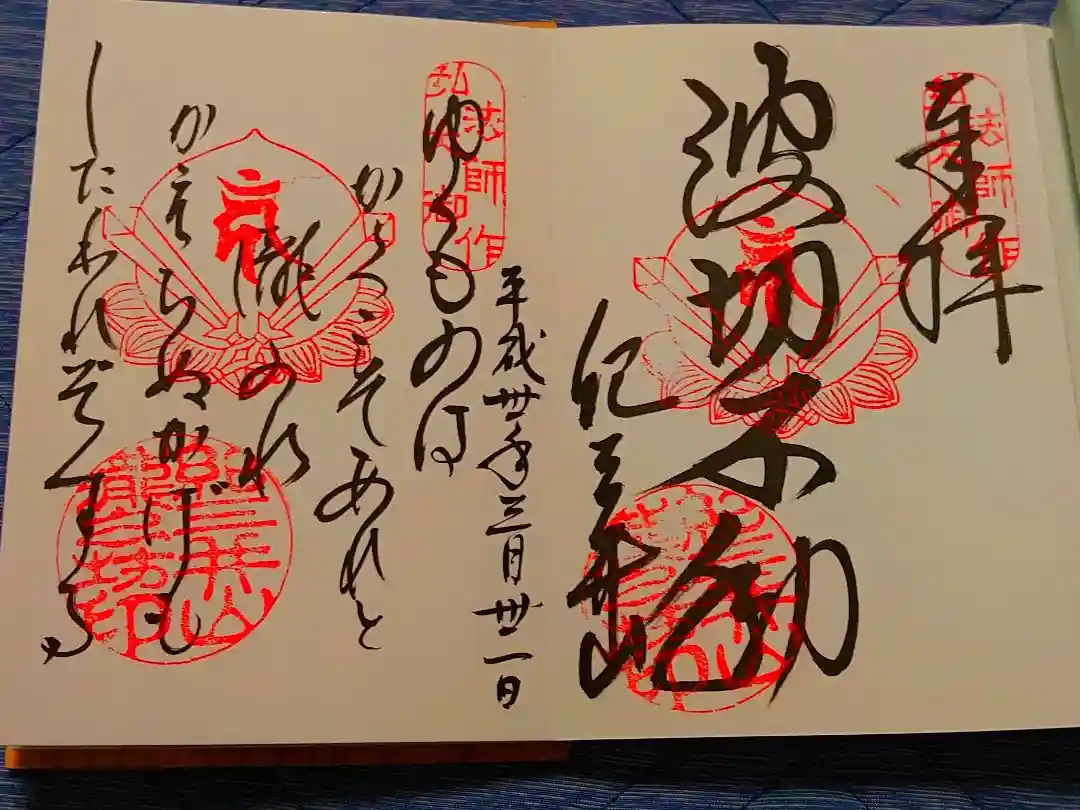 奉拝
弘法大師御作
波切不動
紀三井山
平成卅年三月卅一日
弘法大師御作
ゆくものは
かくこそあれと
瀧の
かえらぬかげも
したわれぞする